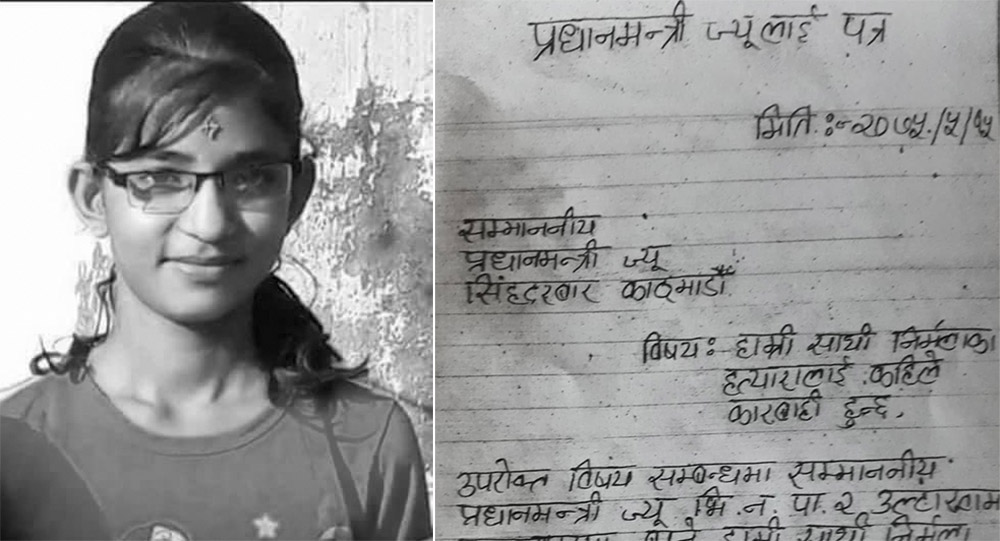 प्रधानमन्त्री ज्यूलाई पत्र
मिति:-२०७५/५/१५
सम्माननीय
प्रधानमन्त्री ज्यू
सिंहदरबार काठमाडौँ
विषय: हाम्री साथी निर्मलाका
हत्यारालाई कहिले
कारबाही हुन्छ.
उपरोक्त विषय सम्बन्धमा सम्माननीय
प्रधानमन्त्री ज्यू भि.न.पा.२ उल्टाखाम
हाम्री साथी निर्मला